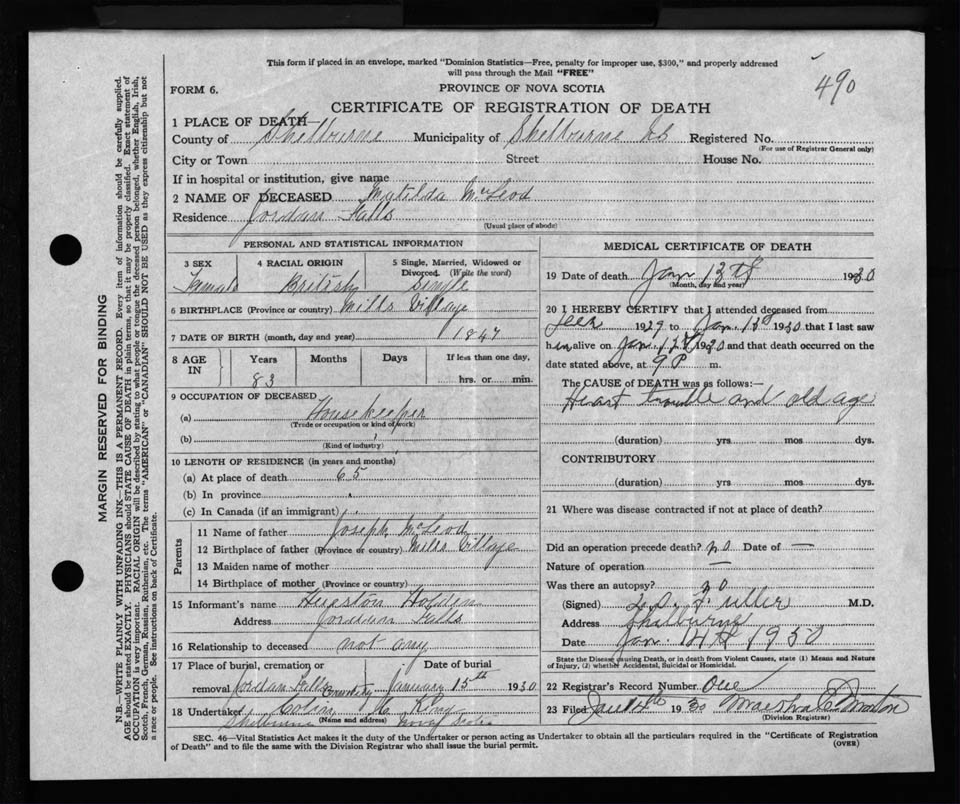 This form if placed in an envelope, marked "Dominion Statistics—Free, penalty for improper use, $300," and properly addressed
will pass through the Mail "FREE"
490
FORM 6.
PROVINCE OF NOVA SCOTIA
CERTIFICATE OF REGISTRATION OF DEATH
1 PLACE OF DEATH—
County of Shelburne Municipality of Shelburne Registered No.
(For use of Registrar General only)
City or Town Street House No.
If in hospital or institution, give name
2 NAME OF DECEASED Matilda McLeod
Residence Jordan Falls
(Usual place of abode)
PERSONAL AND STATISTICAL INFORMATION
3 SEX 4 RACIAL ORIGIN 5 Single, Married, Widowed or
Divorced. (Write the word)
Female British Single
6 BIRTHPLACE (Province or country) Mills Village
7 DATE OF BIRTH (month, day and year) 1847
8 AGE IN Years Months Days If less than one day,
83 hrs. or min.
9 OCCUPATION OF DECEASED
(a) Housekeeper
(Trade or occupation or kind of work)
(b)
(Kind of industry)
10 LENGTH OF RESIDENCE (in years and months)
(a) At place of death 65
(b) In province
(c) In Canada (if an immigrant)
Parents
11 Name of father Joseph McLeod
12 Birthplace of father (Province or country) Mills Village
13 Maiden name of mother
14 Birthplace of mother (Province or country)
15 Informant's name Holden
Address Jordan Falls
16 Relationship to deceased not any
17 Place of burial, cremation or Date of burial
removal Jordan Falls Cemetery January 15th 1930
18 Undertaker Colin King
(Name and address)
Shelburne Nova Scotia
MEDICAL CERTIFICATE OF DEATH
19 Date of death Jan 13th 1930
(Month, day and year)
20 I HEREBY CERTIFY that I attended deceased from
1929 to Jan. 13th 1930 that I last saw
h alive on Jan. 1930 and that death occurred on the
date stated above, at 9 P m.
The CAUSE of DEATH was as follows:—
Heart trouble and old age
(duration) yrs mos dys.
CONTRIBUTORY
(duration) yrs. mos. dys.
21 Where was disease contracted if not at place of death?
Did an operation precede death? no Date of —
Nature of operation —
Was there an autopsy? no
(Signed) Fuller M.D.
Address Shelburne
Date Jan. 14th 1930
State the Disease causing Death, or in death from Violent Causes, state (1) Means and Nature
of Injury, (2) whether Accidental, Suicidal or Homicidal.
22 Registrar's Record Number One
23 Filed Jan 14th 1930
(Division Registrar)
SEC. 46—Vital Statistics Act makes it the duty of the Undertaker or person acting as Undertaker to obtain all the particulars required in the "Certificate of Registration
of Death" and to file the same with the Division Registrar who shall issue the burial permit.
(OVER)
MARGIN RESERVED FOR BINDING
N.B.—WRITE PLAINLY WITH UNFADING INK—THIS IS A PERMANENT RECORD. Every item of information should be carefully supplied.
AGE should be stated EXACTLY. PHYSICIANS should STATE CAUSE OF DEATH in plain terms, so that it may be properly classified. Exact statement of
OCCUPATION is very important. RACIAL ORIGIN will be described by stating to what people or tongue the deceased person belonged, whether English, Irish,
Scotch, French, German, Russian, Ruthenian, etc. The terms "AMERICAN" or "CANADIAN" SHOULD NOT BE USED as they express citizenship but not
a race or people. See instructions on back of Certificate.